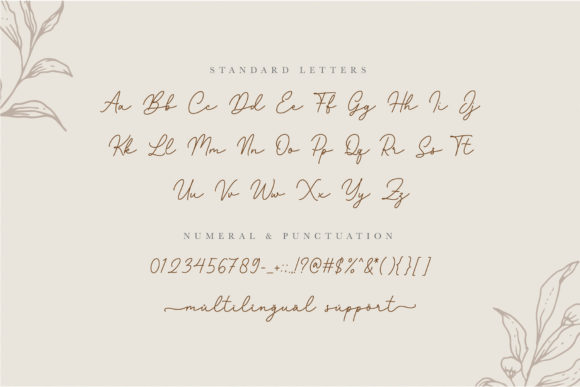 STANDARD LETTERS
Aa Bb Cc Dd Ee Ff Gg Hh Ii Jj
Kk Ll Mm Nn Oo Pp Qq Rr Ss Tt
Uu Vv Ww Xx Yy Zz
NUMERAL & PUNCTUATION
0123456789-_+:;.,!?@#$%^&*(){}[]
multilingual support